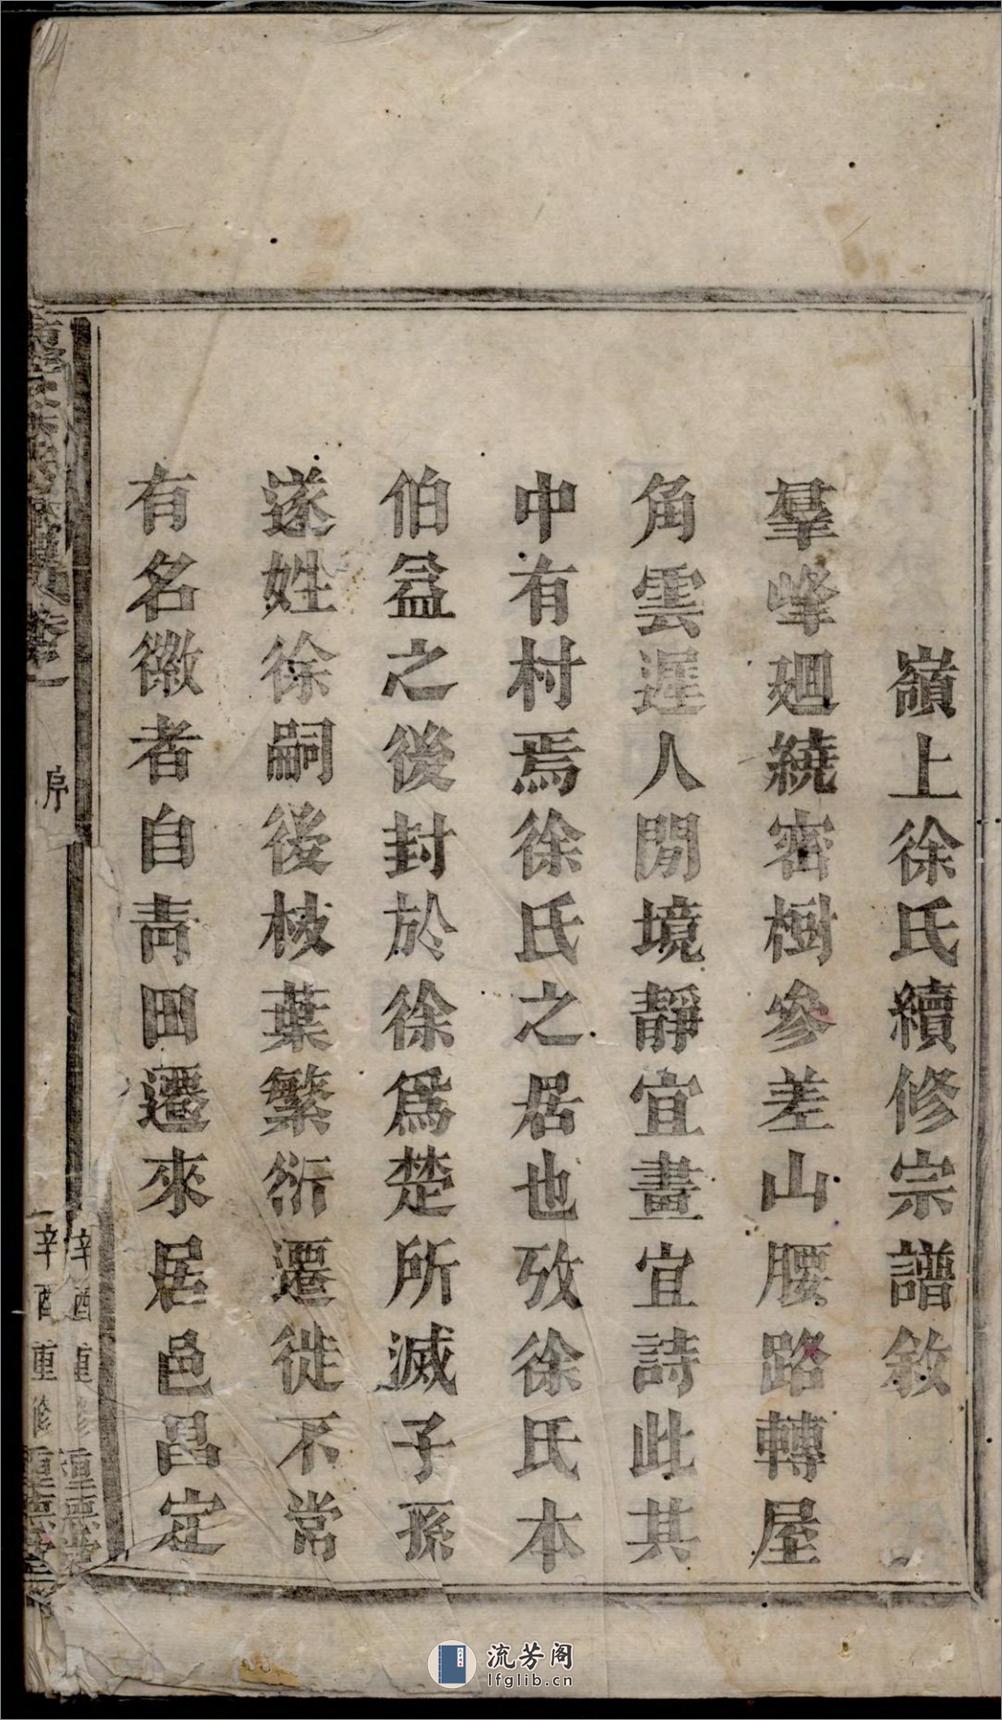 嶺上徐氏續修宗譜敘
羣峰廻繞密樹參差山腰路轉屋
角雲遲人閒境靜宜畫宜詩此其
中有村焉徐氏之居也攷徐氏本
伯益之後封於徐爲楚所滅子孫
遂姓徐嗣後枝葉繁衍遷徙不常
有名徽者自青田遷來居邑昌定
卷一
序
一
辛酉重修
辛酉重修
種德堂
流芳阁
lfglib.cn